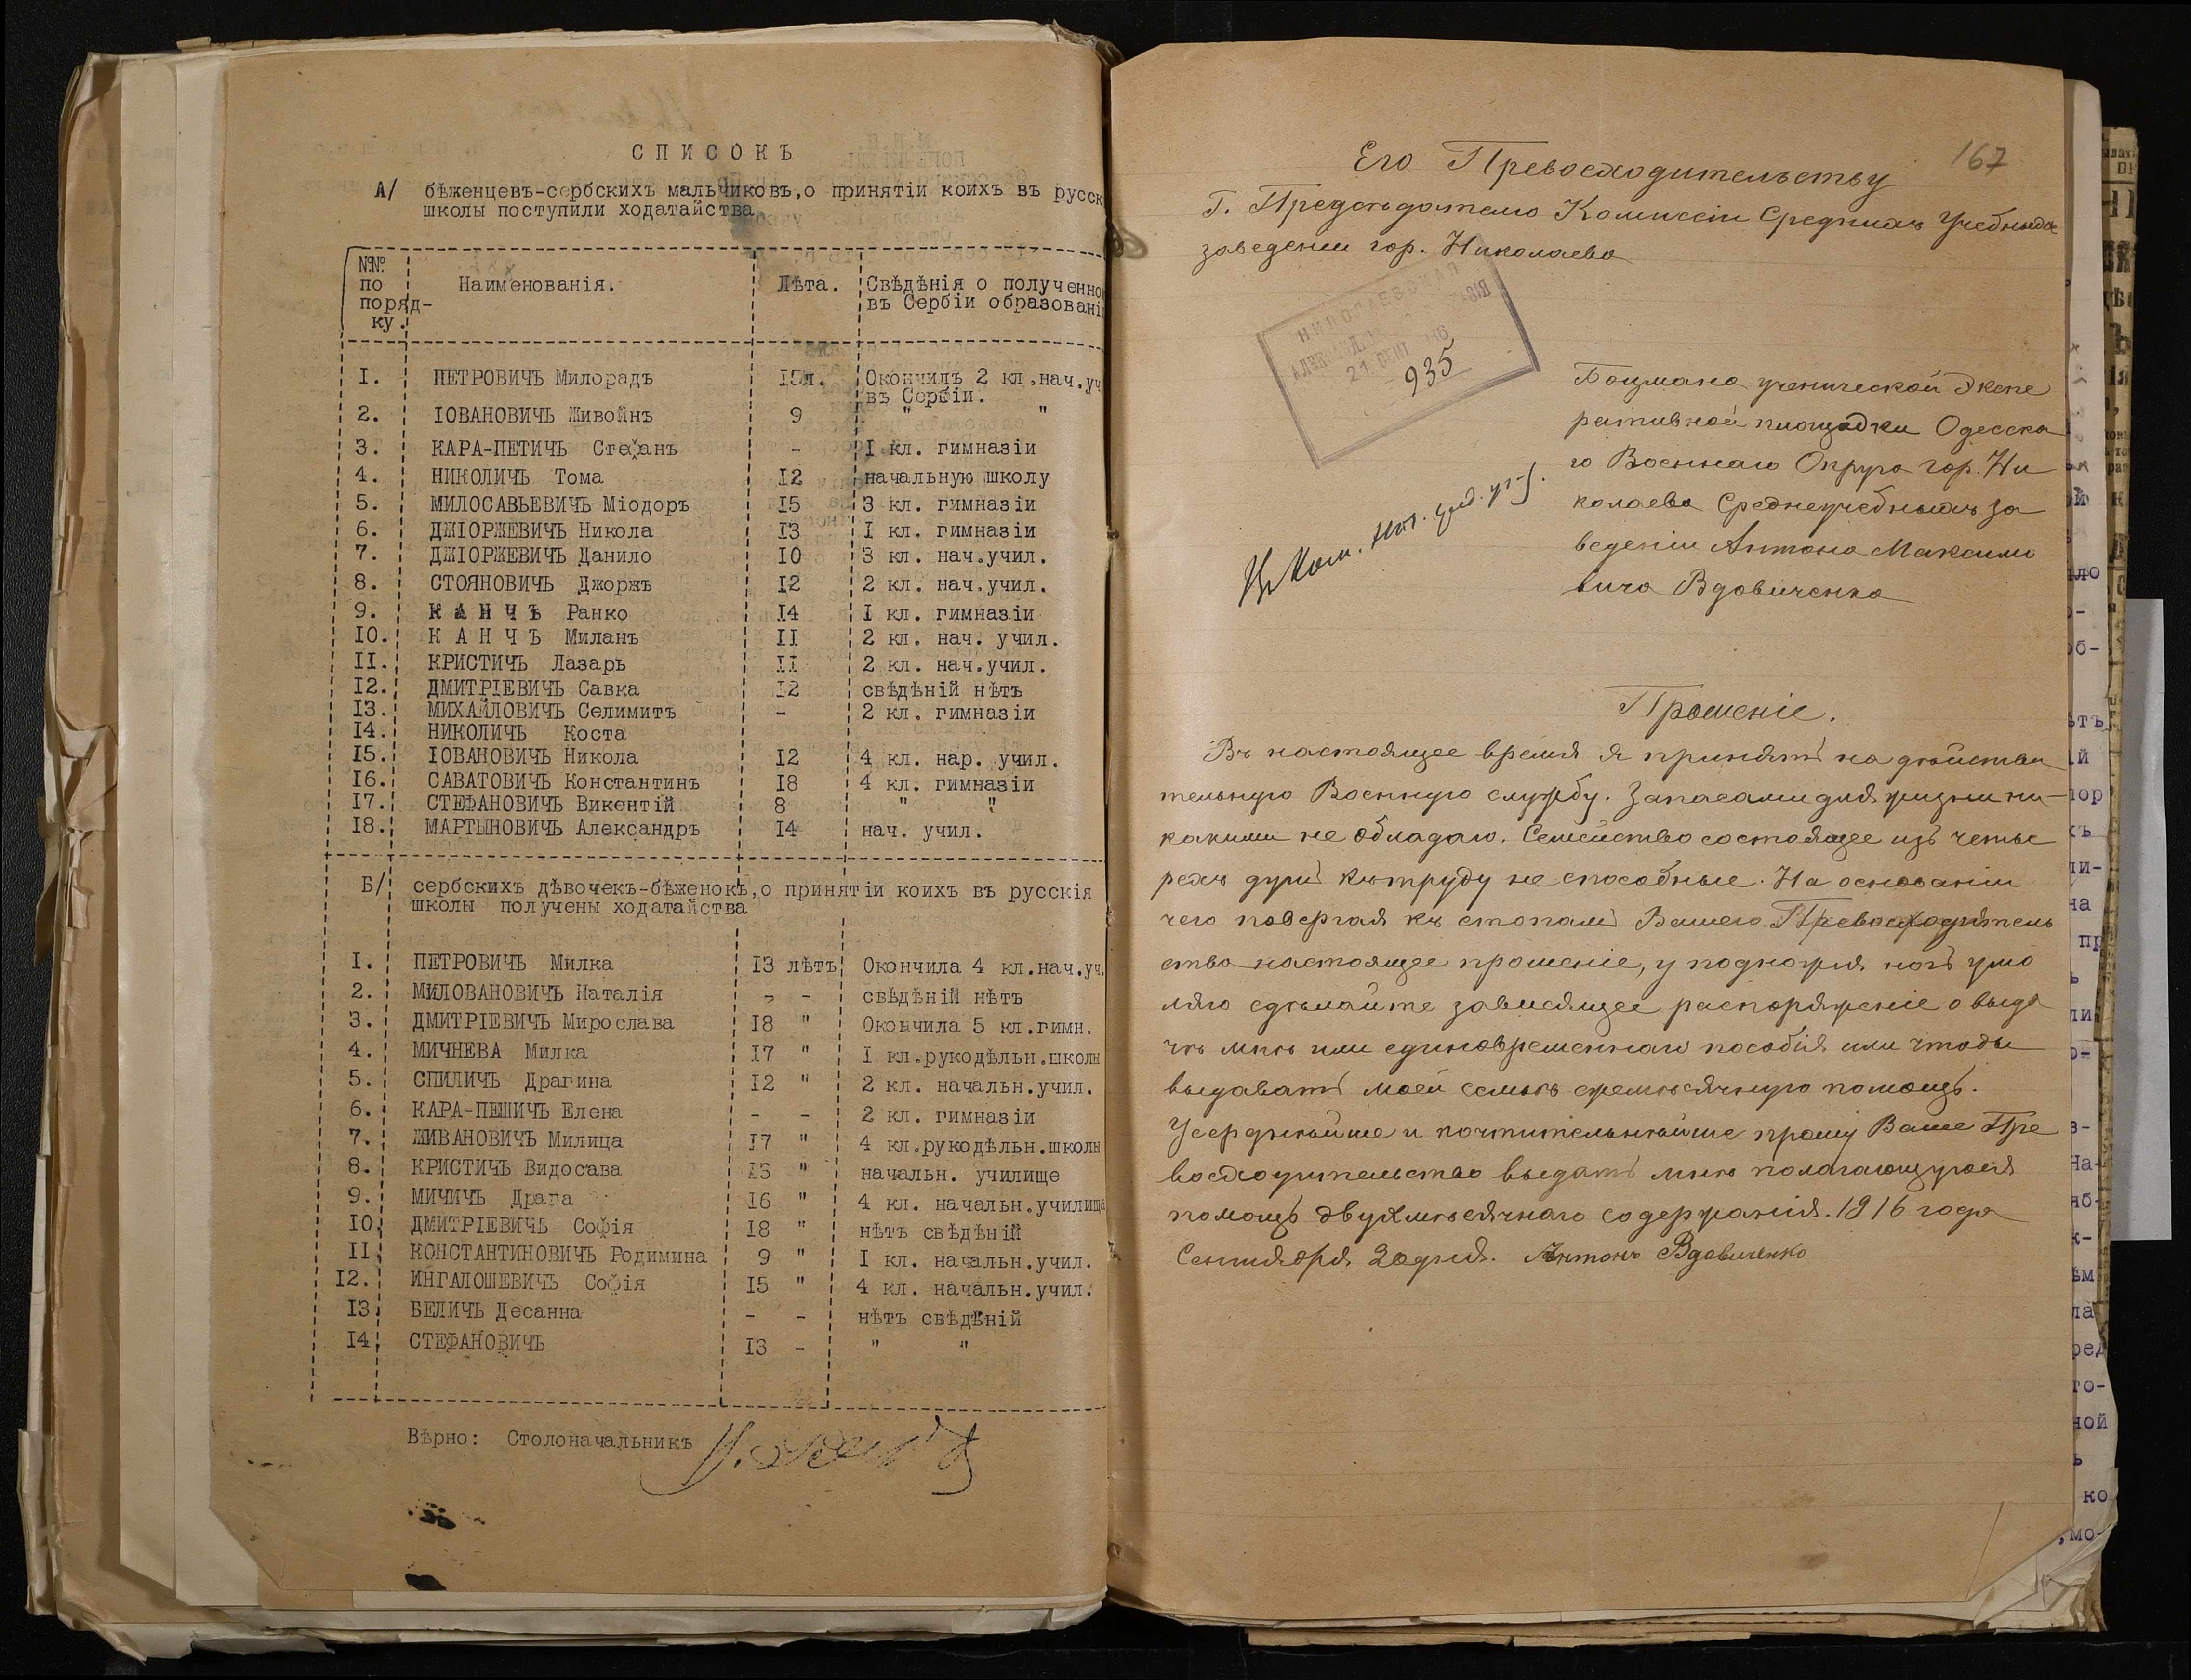 СПИСОКЪ
А/ бѣженцевъ-сербскихъ мальчиковъ,о принятіи коихъ въ русск
школы поступили ходатайства
№№ по поряд-ку. Наименованія. Лѣта. Свѣдѣнія о полученно въ Сербіи образовані
I. ПЕТРОВИЧЪ Милорадъ 15л. Окончилъ 2 кл.нач.уч
въ Сербіи.
2. IОВАНОВИЧЪ Живойнъ 9 " "
3. КАРА-ПЕТИЧЪ Стефанъ - I кл. гимназіи
4. НИКОЛИЧЪ Тома I2 начальную школу
5. МИЛОСАВЬЕВИЧЪ Міодоръ I5 3 кл. гимназіи
6. ДЖІОРЖЕВИЧЪ Никола I3 I кл. гимназіи
7. ДЖІОРЖЕВИЧЪ Данило IO 3 кл. нач.учил.
8. СТОЯНОВИЧЪ Джоржъ I2 2 кл. нач.учил.
9. КАНЧЪ Ранко I4 I кл. гимназіи
IO. КАНЧЪ Миланъ II 2 кл. нач. учил.
II. КРИСТИЧЪ Лазарь II 2 кл. нач.учил.
I2. ДМИТРІЕВИЧЪ Савка I2 свѣдѣній нѣтъ
I3. МИХАЙЛОВИЧЪ Селимитъ - 2 кл. гимназіи
I4. НИКОЛИЧЪ Коста
I5. IОВАНОВИЧЪ Никола I2 4 кл. нар. учил.
I6. САВАТОВИЧЪ Константинъ I8 4 кл. гимназіи
I7. СТЕФАНОВИЧЪ Викентій 8 " "
I8. МАРТЫНОВИЧЪ Александръ I4 нач. учил.
Б/ сербскихъ дѣвочекъ-бѣженокъ,о принятіи коихъ въ русскія
школы получены ходатайства
I. ПЕТРОВИЧЪ Милка I3 лѣтъ Окончила 4 кл.нач.уч.
2. МИЛОВАНОВИЧЪ Наталія - - свѣдѣній нѣтъ
3. ДМИТРІЕВИЧЪ Мирослава I8 " Окончила 5 кл.гимн.
4. МИЧНЕВА Милка I7 " I кл.рукодѣльн.школн
5. СПИЛИЧЪ Драгина I2 " 2 кл. начальн.учил.
6. КАРА-ПЕШИЧЪ Елена - - 2 кл. гимназіи
7. ЖИВАНОВИЧЪ Милица I7 " 4 кл.рукодѣльн.школн
8. КРИСТИЧЪ Видосава I3 " начальн. училище
9. МИЧИЧЪ Драга I6 " 4 кл. начальн.училища
IO. ДМИТРІЕВИЧЬ Софія I8 " нѣтъ свѣдѣній
II. КОНСТАНТИНОВИЧЪ Родимина 9 " I кл. начальн.учил.
I2. ИНГАЛОШЕВИЧЪ Софія I5 " 4 кл. начальн.учил.
I3. БЕЛИЧЬ Десанна - - нѣтъ свѣдѣній
I4. СТЕФАНОВИЧЪ I3 - " "
Вѣрно: Столоначальникъ
167
Его Превосходительству
Г. Предсѣдателю Комиссіи Среднихъ Учебныхъ
заведеніи гор. Николаева
НИКОЛАЕВСКАЯ
21 СЕНТ
935
Боцмана ученической Экспе
ративной площадки Одесска
го Военнаго Округа гор. Ни
колаева Среднеучебныхъ за
веденіи Антона Максимо
вича Вдовиченко
Прошеніе.
Въ настоящее время я принятъ на дѣйстви
тельную Военную службу. Запасами для жизни ни-
какими не обладаю. Семейство состоящее изъ четы
рехъ душъ къ труду не способные. На основаніи
чего повергая къ стопамъ Вашего Превосходитель
ства настоящее прошеніе, у подножія ногъ умо
ляю сдѣлайте зависящее распоряженіе о выда
чѣ мнѣ или единовременнаго пособія или чтобы
выдавать моей семьѣ ежемѣсячную помощь.
Усерднѣйше и почтительнѣйше прошу Ваше Пре
восходительство выдать мнѣ полагающуюся
помощь двухмѣсячнаго содержанія. 1916 года
Сентября 20 дня. Антонъ Вдовиченко